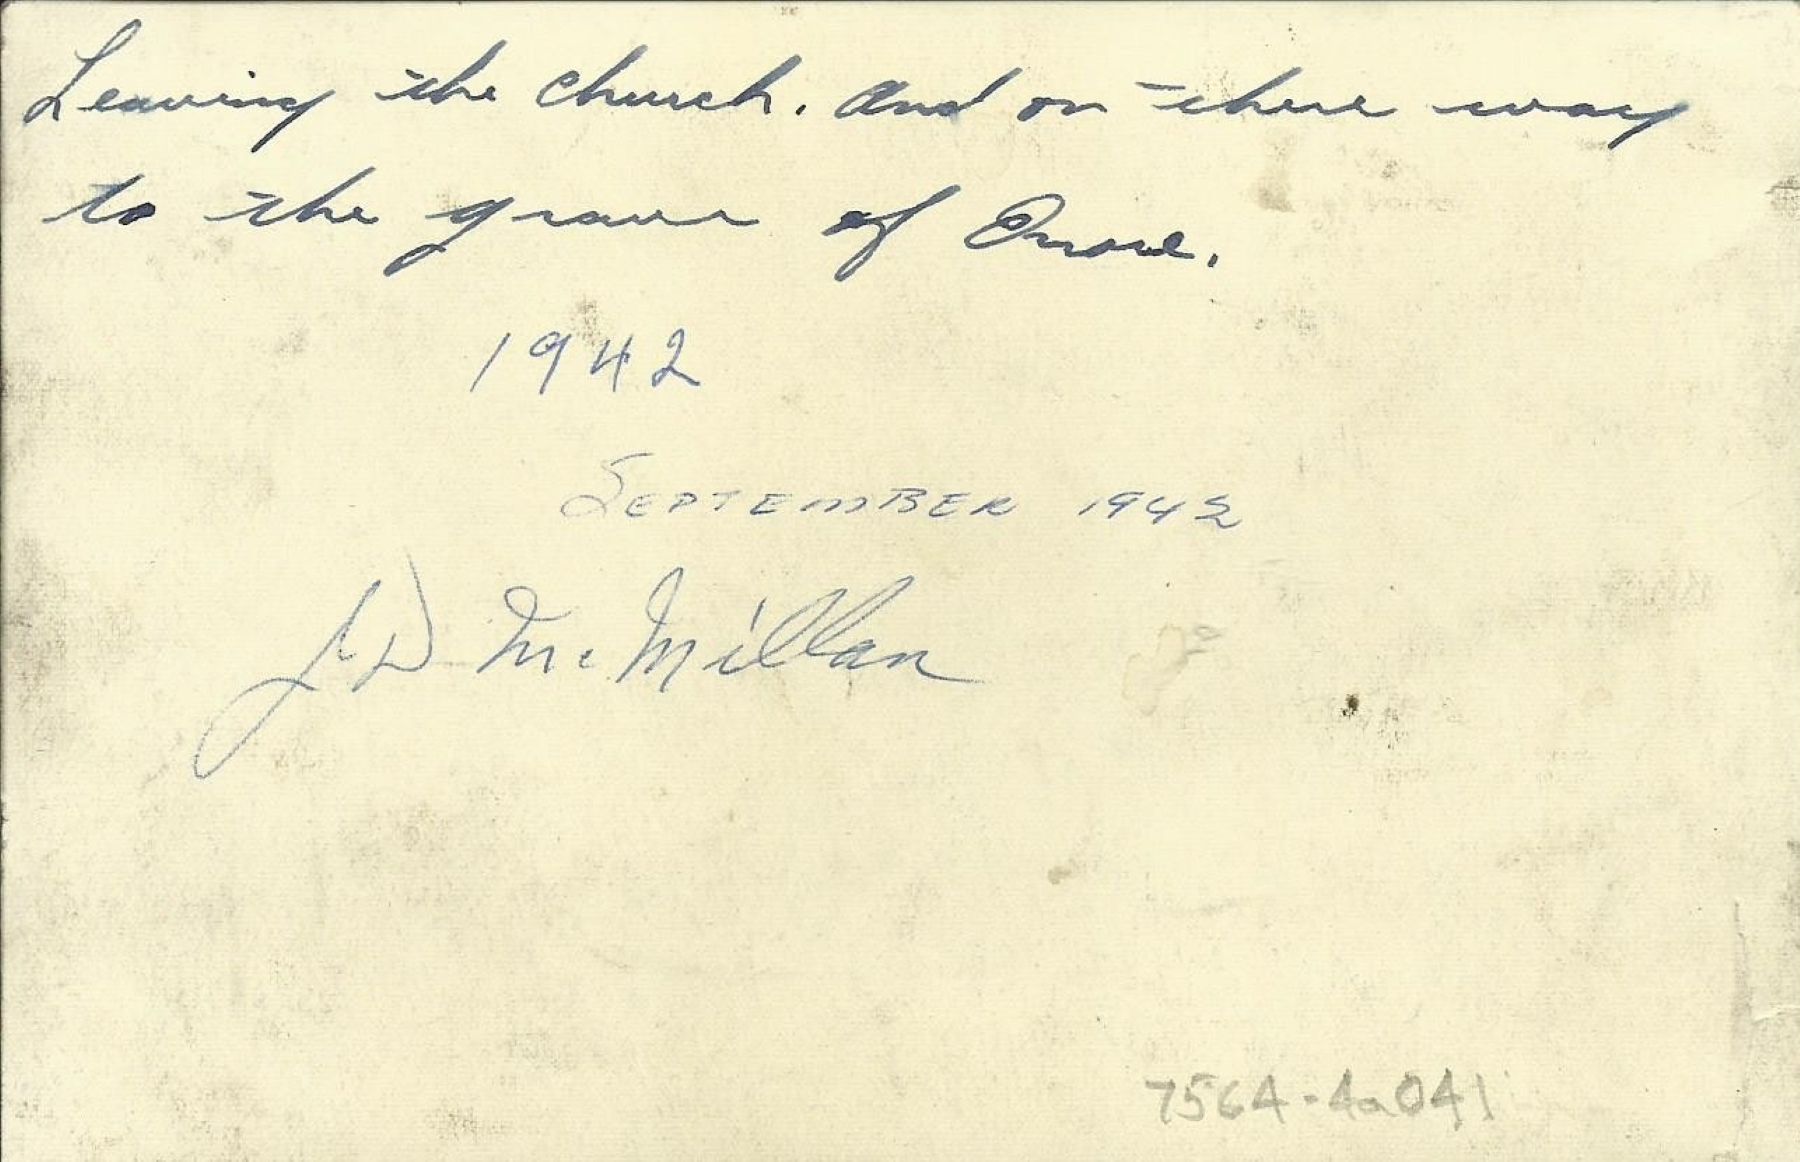 Leaving the church. and on there way
to the grave of
1942
SEPTEMBER 1942
JD McMillan
7564-4a041